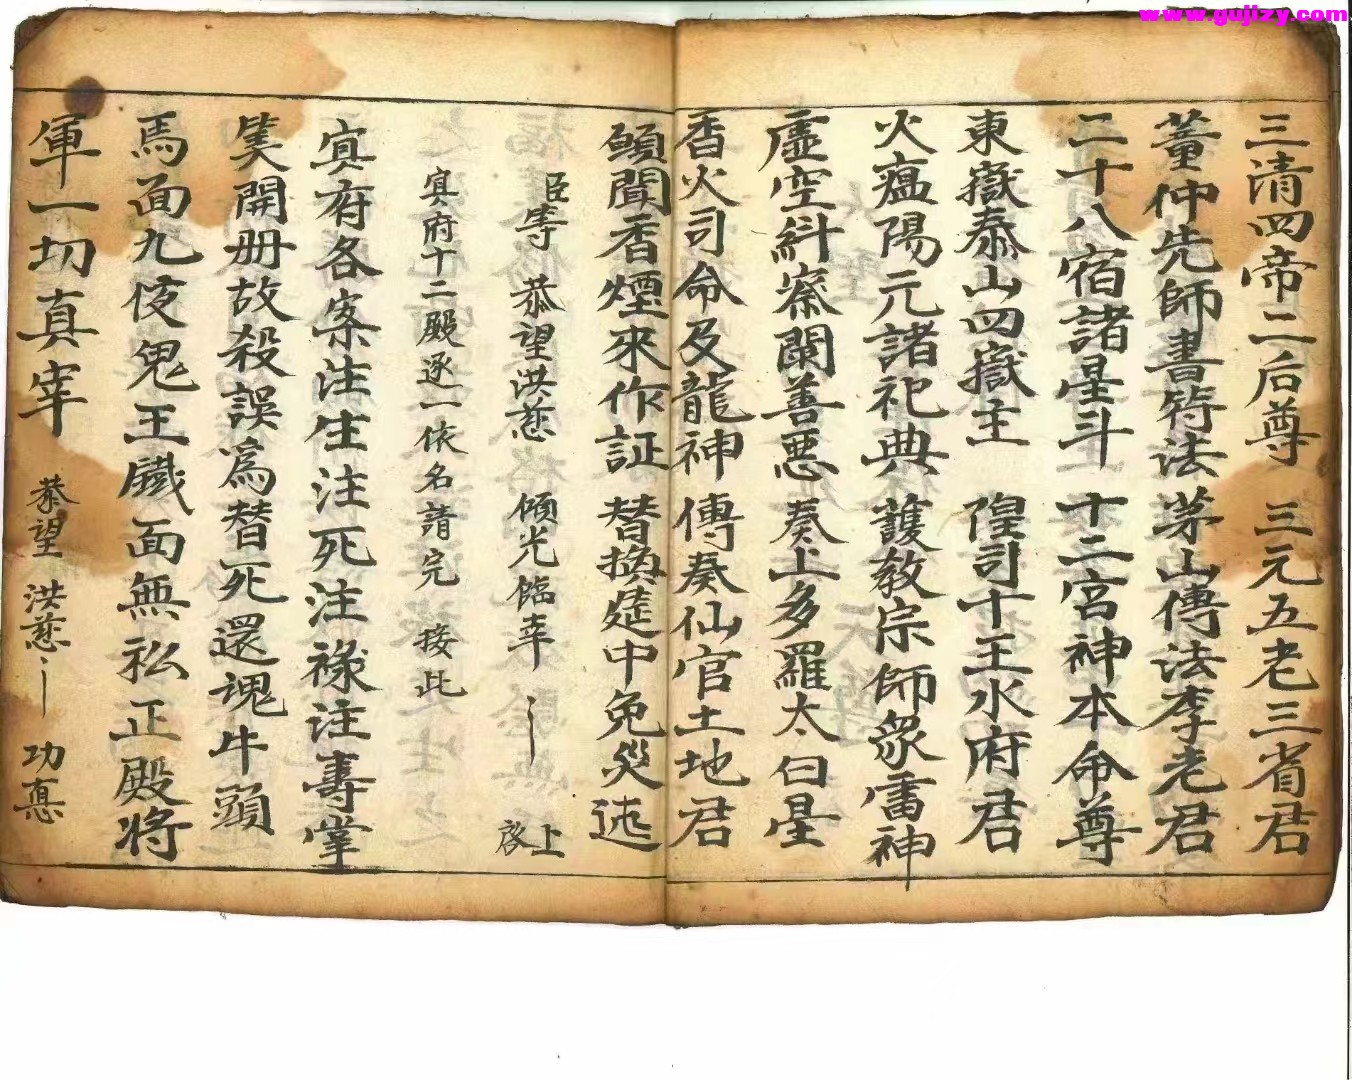 www.gujizy.com
三清四帝二后尊 三元五老三省君
董仲先師書符法 茅山傳法李老君
二十八宿諸星斗 十二宮神本命尊
東嶽泰山四嶽主 隍司十王水府君
火瘟陽元諸祀典 護教宗師眾雷神
虛空糾察闌善惡 奏上多羅太白星
香火司命及龍神 傳奏仙官土地君
願聞香煙來作証 替換筵中免災迍
臣等 恭望洪慈 傾光臨幸 上啓
冥府十二殿逐一依名請完 接此
冥府各案注生注死注祿注壽掌
筭開册故殺誤爲替死還魂牛頭
馬面九伎鬼王鐵面無私正殿将
軍一切真宰 恭望 洪慈 功悳